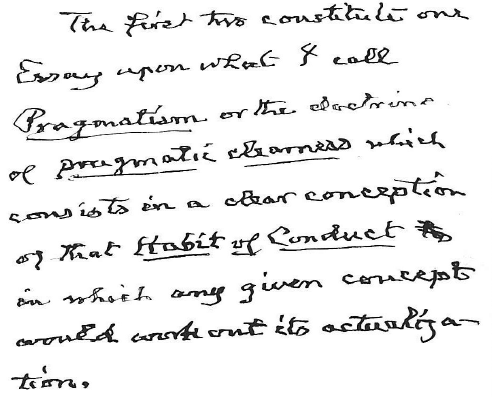 The first two constitute one
Essay upon what I call
Pragmatism or the doctrine
of pragmatic clearness which
consists in a clear conception
of that Habit of Conduct
in which any given concepts
would work out its actualiza-
tion.